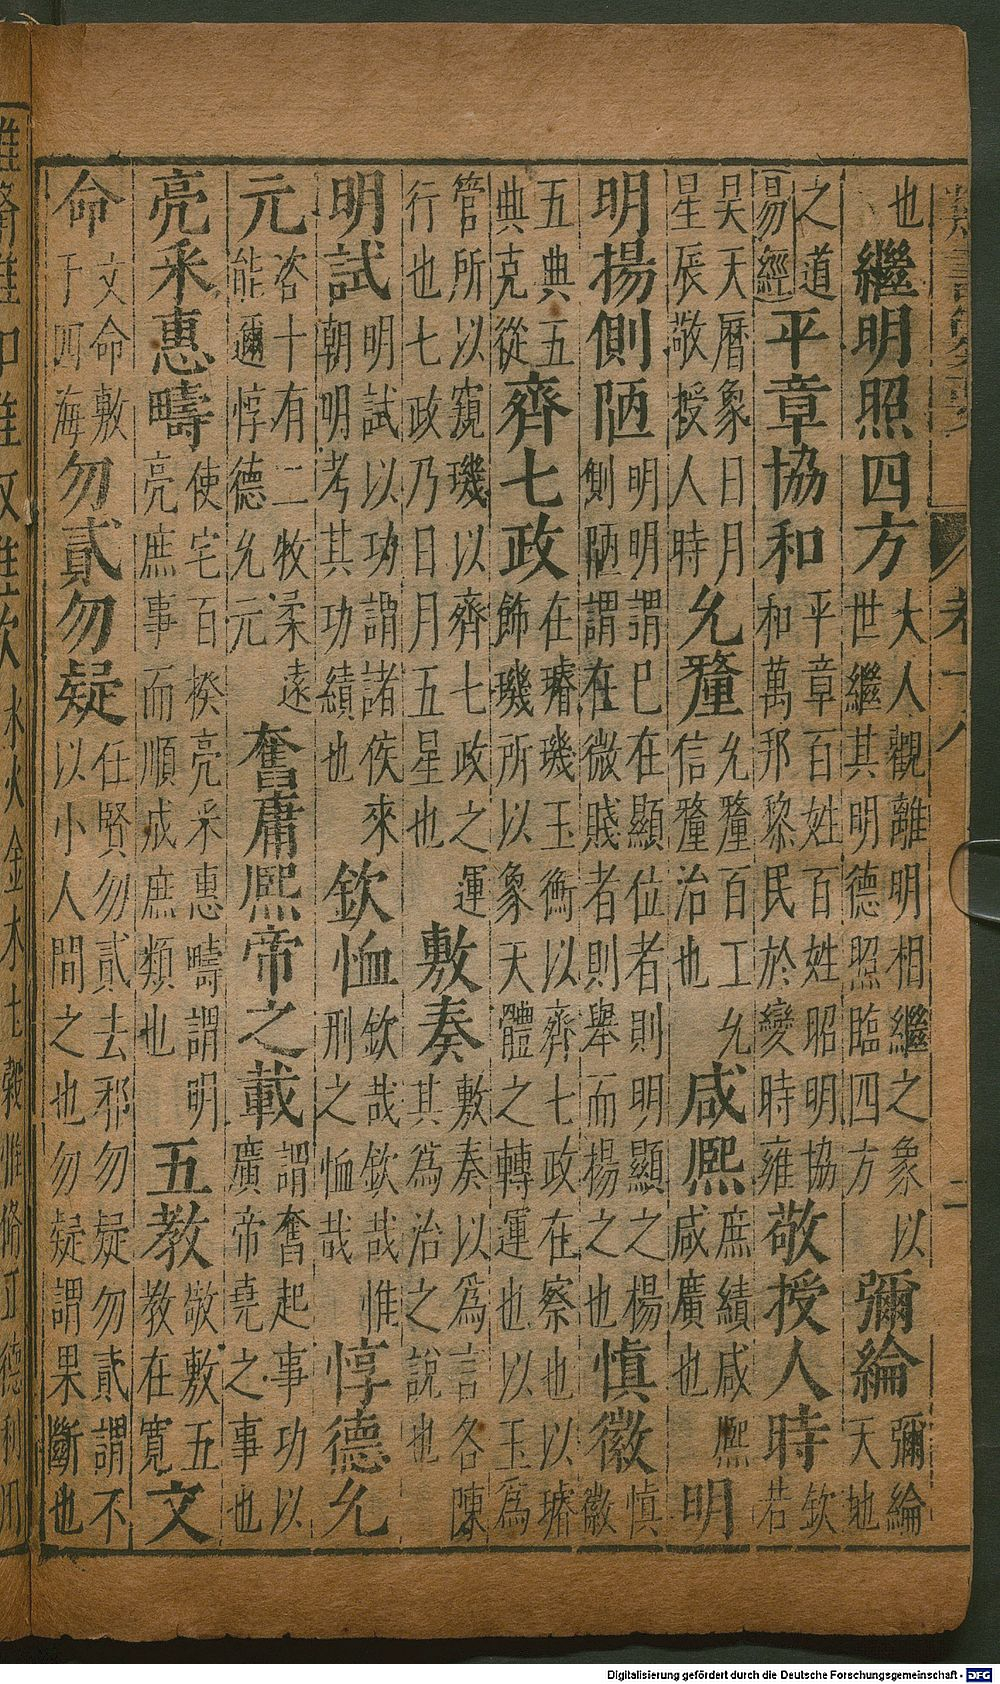 也繼明照四方大人觀離明相繼之象以世繼其明德照臨四方彌綸彌綸天地
之道易經平章協和平章百姓百姓昭明協和萬邦黎民於變時雍敬授人時欽若
昊天曆象日月星辰敬授人時允釐允釐百工允信釐治也咸熙庶績咸熙咸廣也明
明揚側陋明明謂已在顯位者則明顯之楊側陋謂在微賤者則舉而揚之也慎徽慎徽
五典五典克從齊七政在璿璣玉衡以齊七政在察也以璿飾璣所以象天體之轉運也以玉為
管所以窺璣以齊七政之運行也七政乃日月五星也敷奏敷奏以為言各陳其為治之說也
明試明試以功謂諸侯來朝明考其功績也欽恤欽哉欽哉惟刑之恤哉惇德允
元咨十有二牧柔遠能邇惇德允元奮庸熙帝之載謂奮起事功以廣帝堯之事也
亮采惠疇使宅百揆亮采惠疇謂明亮庶事而順成庶類也五教敬敷五教在寬文
命文命敷于四海勿貳勿疑任賢勿貳去邪勿疑勿貳謂不以小人間之也勿疑謂果斷也
水火金木土穀惟脩正德利用
Digitalisierung gefördert durch die Deutsche Forschungsgemeinschaft - DFG